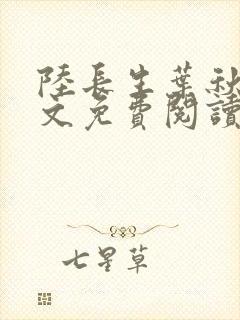 陸長生葉秋
文免費閱讀
七星草